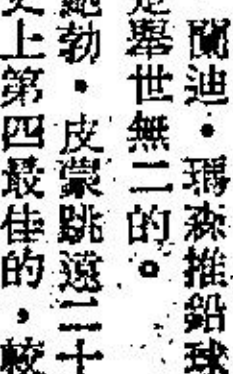 蘭迪・瑪森推鉛球
是舉世無二的。
鮑勃・皮蒙跳遠二十
史上第四最佳的，較